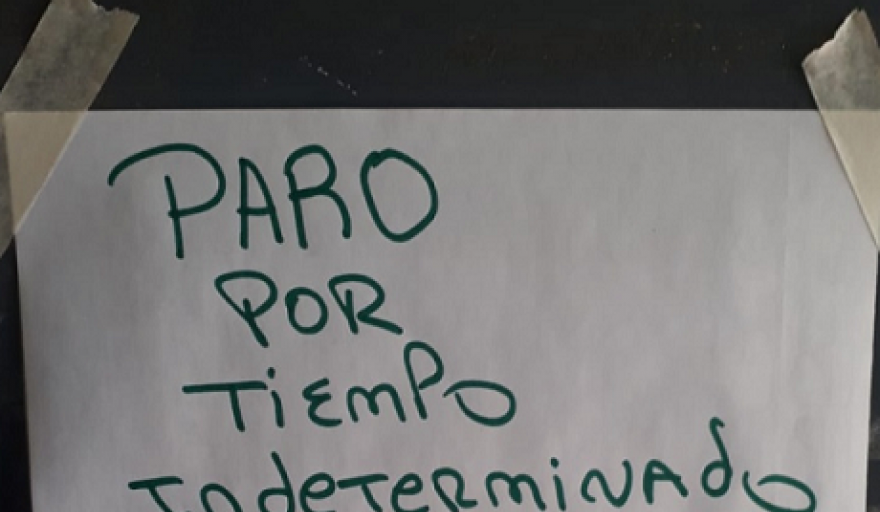 PARO
POR
TiEmPo
IndeTeRmiNAdo